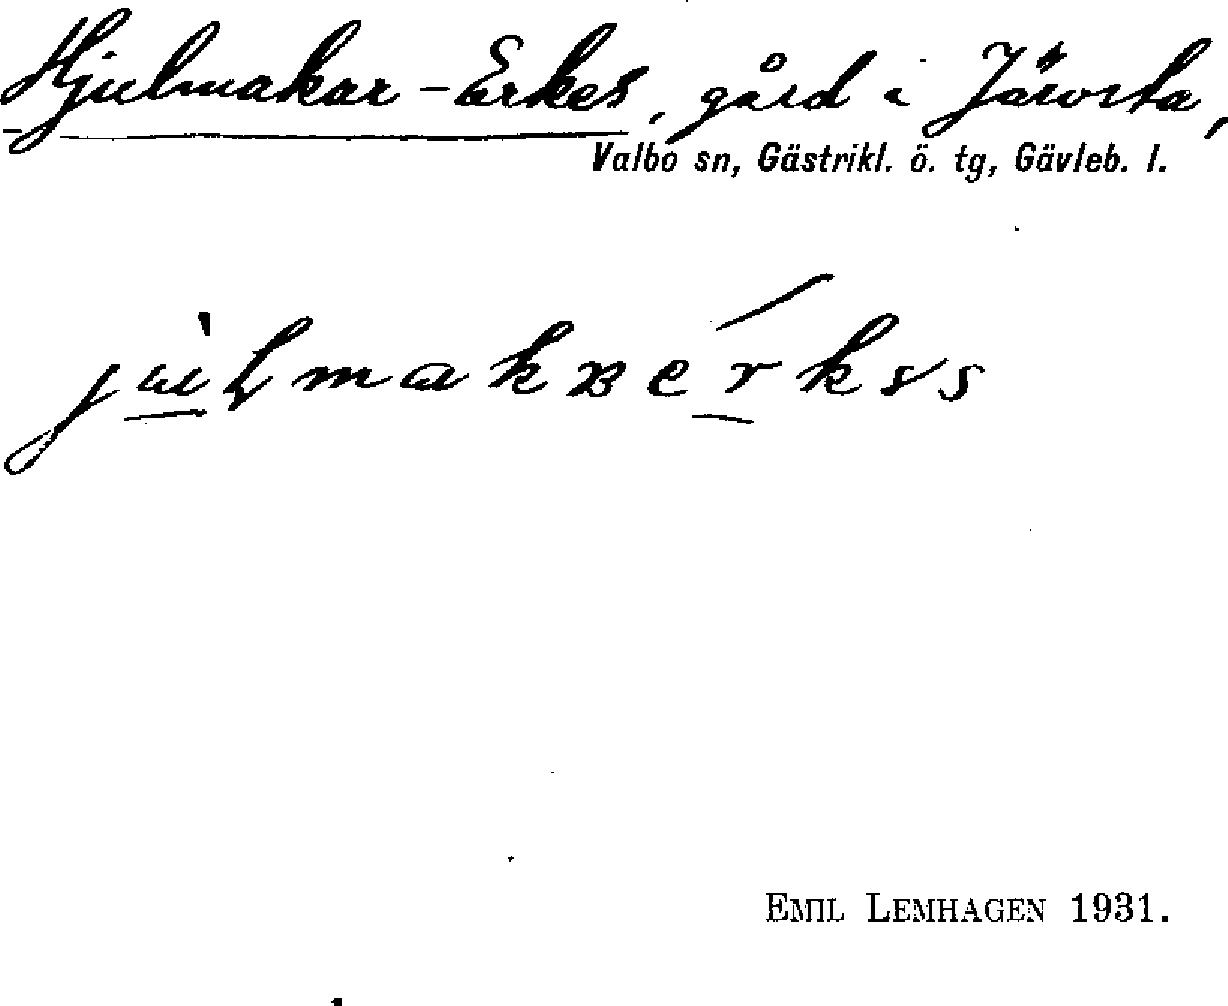 Hjulmakar-Erkes, gård i Järvsta,
Valbo sn, Gästrikl. ö. tg, Gävleb. l.
EMIL LEMHAGEN 1931.